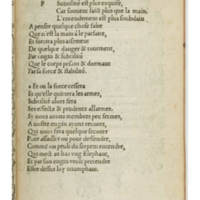 P Subtilité est plus exquise,
Car souvent faict plus que la main.
L'entendement est plus soubdain
A penser quelque chose faire
Que n'est la main à le parfaire,
Et sortira plus aisement
De quelque danger & tourment,
Par cautelle & subtilité
Que le corps pesant &
Par sa force & stabilité.
Et ou la force cessera
Et qu'elle quittera les armes,
Subtilité alors sera
Ses effectz & prendra
A noz ennemys,
A nostre engin ayons secours,
Qui nous fera quelque secours
Pour assaillir ou pour deffendre,
Comme on peult du serpent entendre,
Qui met à bas ung Elephant,
Et par son engin veult pretendre
Estre dessus luy triumphant.